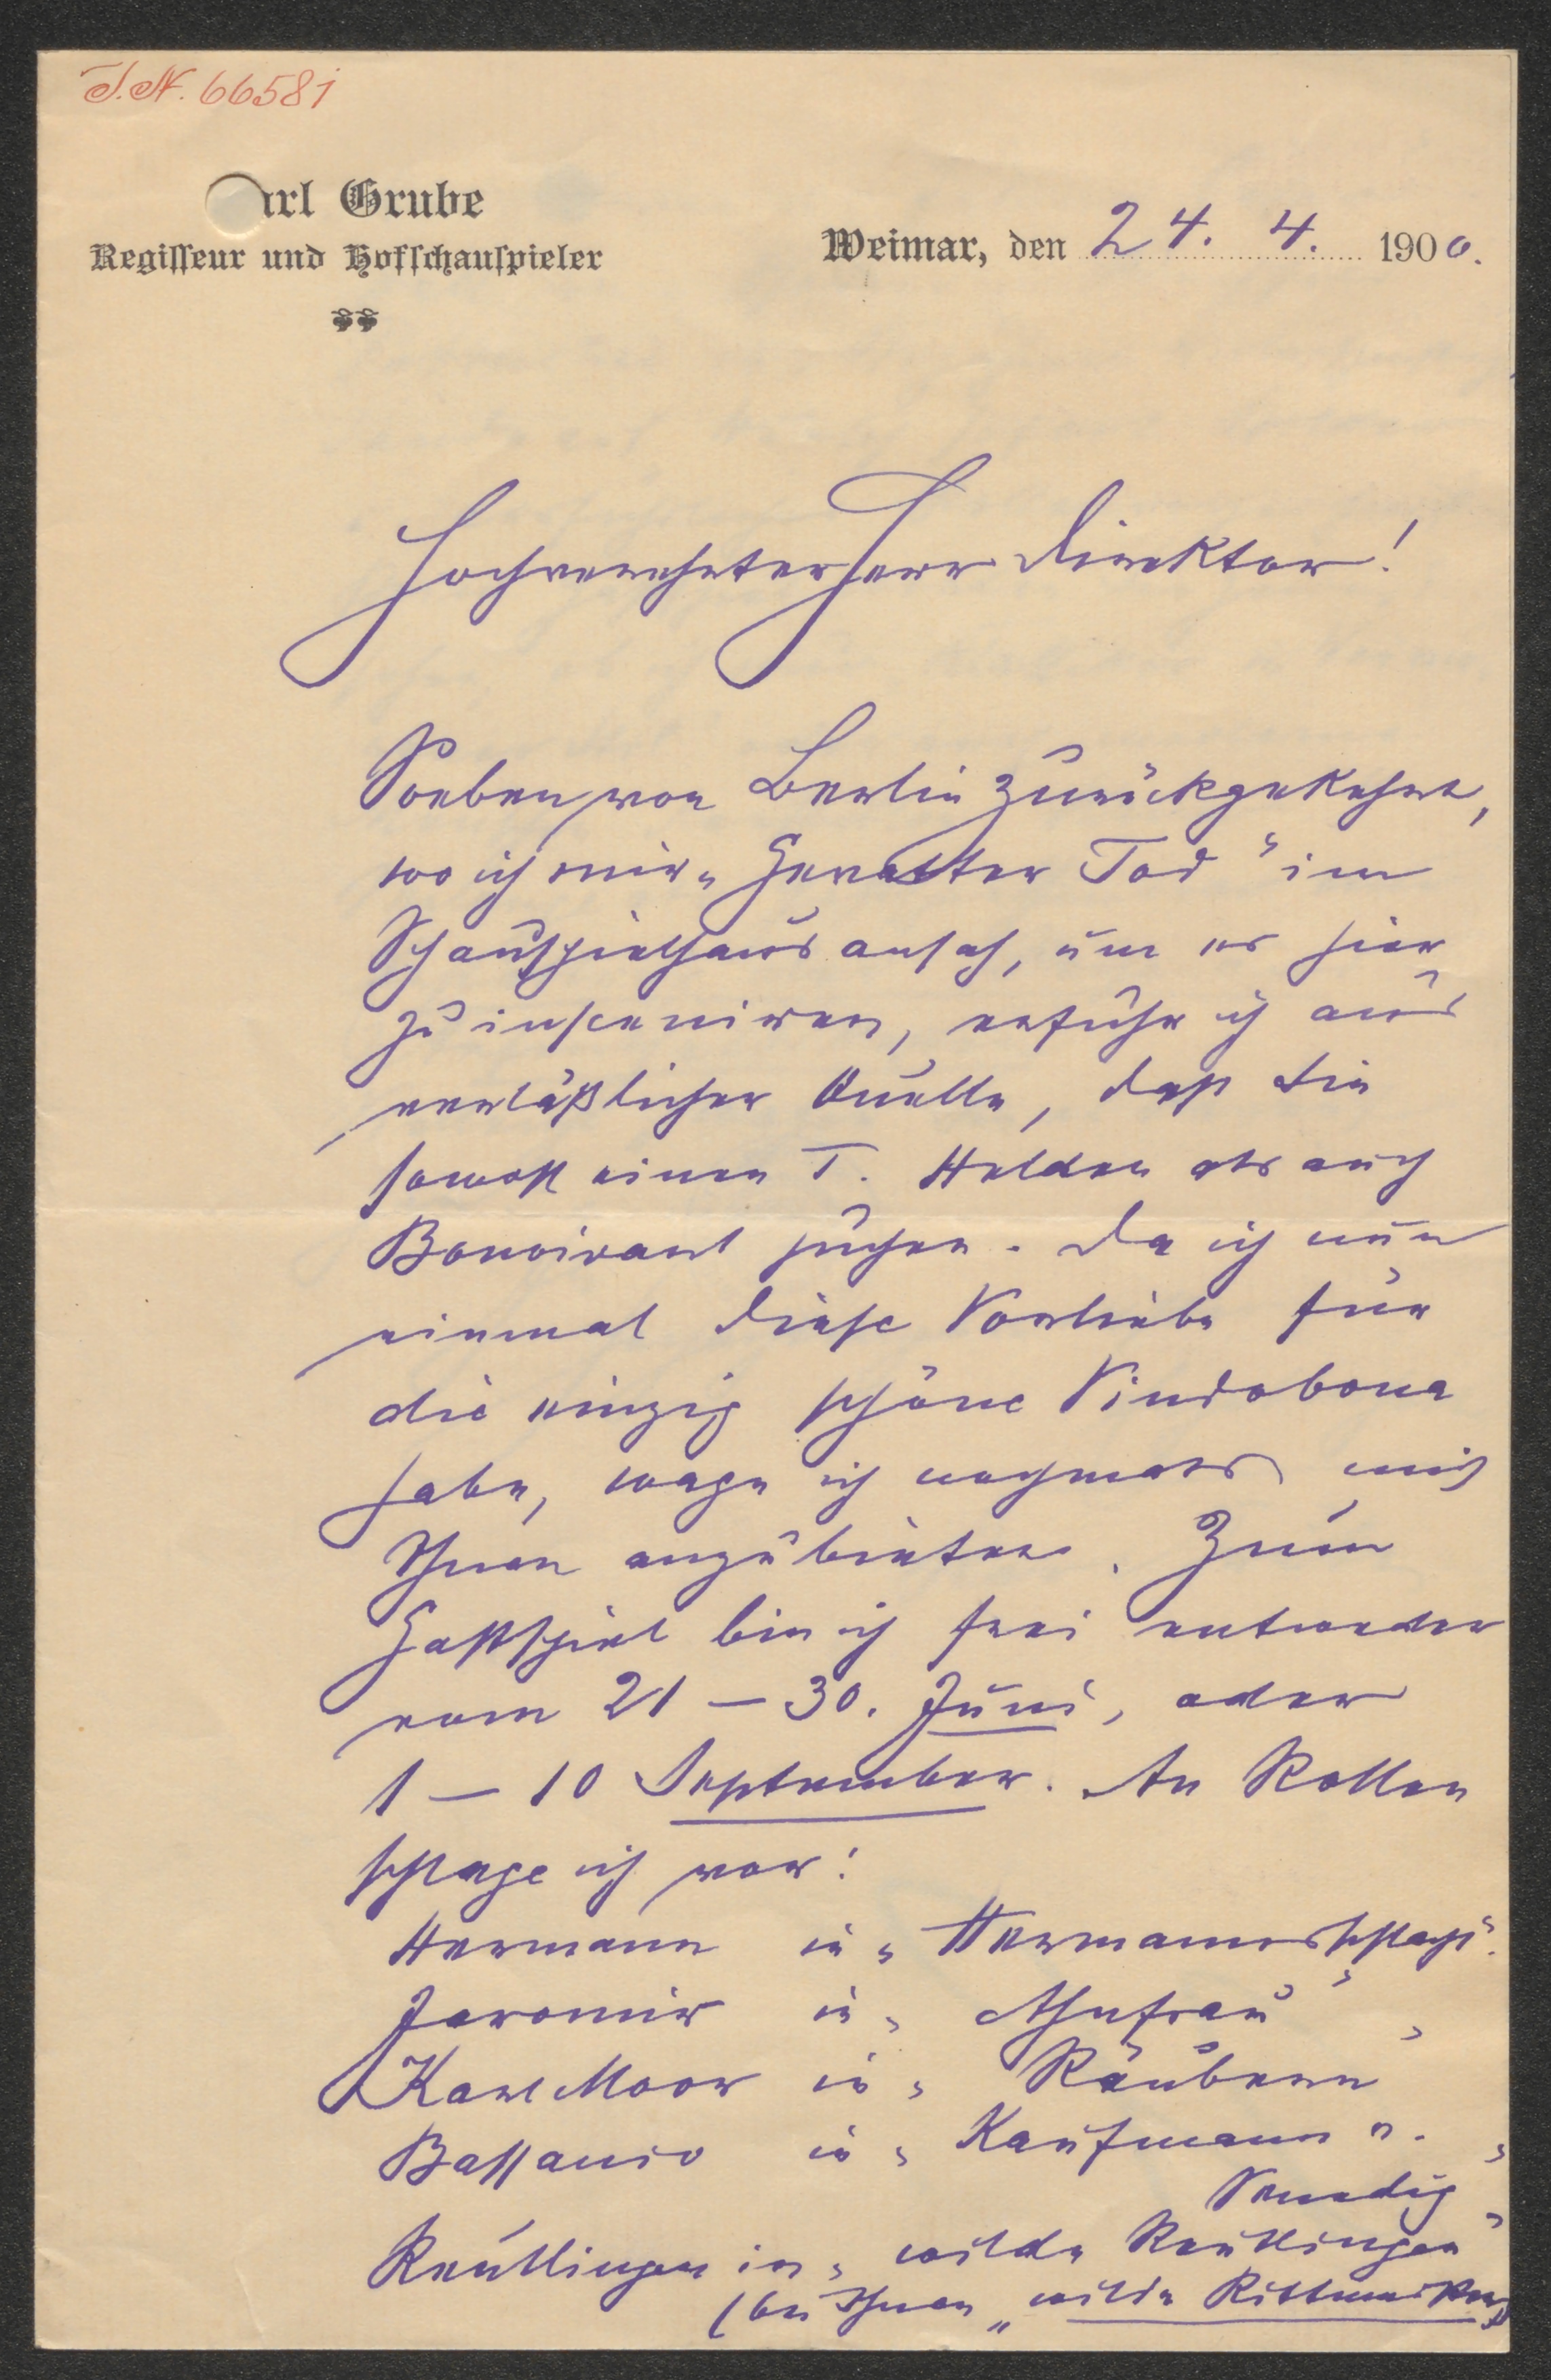 I.N. 66581
arl Grube
Regisseur und Hofschauspieler
Weimar, den 24. 4. 1900.
Hochverehrter Herr Direktor!
Soeben von Berlin zurückgekehrt,
wo ich mir „Gevatter Tod“ im
Schauspielhaus ansah, um es hier
zu insceniren, erfuhr ich aus
verläßlicher Quelle, daß Sie
sowohl einen I. Helden als auch
Bonvivant suchen. Da ich nun
einmal diese Vorliebe für
die einzig schöne Vindobona
habe, wage ich nochmals mich
Ihnen anzubieten. Zum
Gastspiel bin ich frei entweder
vom 21 – 30. Juni, oder
1 – 10 September. An Rollen
schlage ich vor:
Hermann in „Hermannsschlacht“.
Jaromir in „Ahnfrau“
Karl Moor in „Räubern“
Bassanio in „Kaufmann v.
Venedig“
Reutlingen in „wilde Reutlingen“
(bei Ihnen „wilde Rittmeister“)